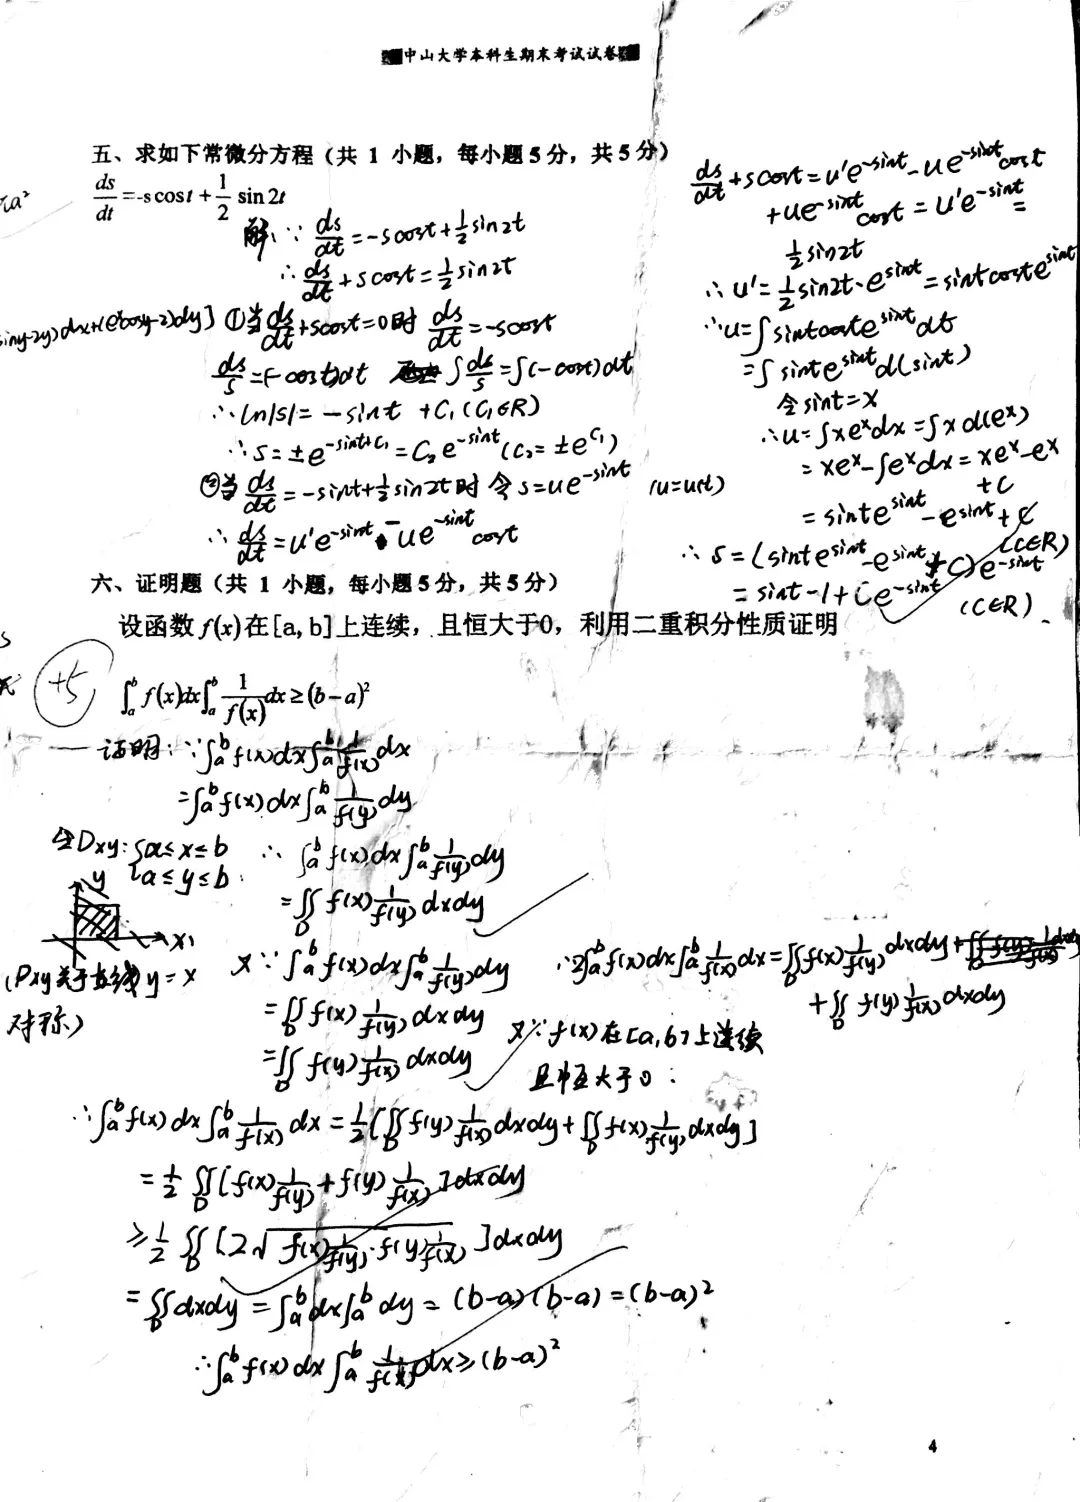 中山大学本科生期末考试试卷
五、求如下常微分方程（共 1 小题，每小题5分，共5分）
ds/dt=-s cos t+1/2 sin 2t
解: ∵ ds/dt=-scost+1/2sin2t
∴ ds/dt+scost=1/2sin2t
①当ds/dt+scost=0时 ds/dt=-scost
ds/s=(-cost)dt ∫ds/s=∫(-cost)dt
∴ln|s|=-sint+C₁(C₁∈R)
∴s=±e^(-sint+C₁)=C₂e^(-sint)(C₂=±e^(C₁))
②当ds/dt=-sint+1/2sin2t时 令s=ue^(-sint) (u=u(t))
∴ds/dt=u'e^(-sint)-ue^(-sint)cost
ds/dt+scost=u'e^(-sint)-ue^(-sint)cost
+ue^(-sint)cost=u'e^(-sint)=
1/2sin2t
∴u'=1/2sin2t·e^(sint)=sintcoste^(sint)
∴u=∫sintcoste^(sint)dt
=∫sinte^(sint)d(sint)
令sint=x
∴u=∫xe^xdx=∫xd(e^x)
=xe^x-∫e^xdx=xe^x-e^x
+C
=sinte^(sint)-e^(sint)+C
(C∈R)
∴s=(sinte^(sint)-e^(sint)+C)e^(-sint)
=sint-1+Ce^(-sint)
(C∈R)
πa²
siny-2y)dx+(e^xcosy-2)dy]
六、证明题（共 1 小题，每小题5分，共5分）
设函数f(x)在[a, b]上连续，且恒大于0，利用二重积分性质证明
+5
∫_a^b f(x)dx∫_a^b 1/f(x)dx≥(b-a)²
证明: ∵∫_a^b f(x)dx∫_a^b 1/f(x)dx
=∫_a^b f(x)dx∫_a^b 1/f(y)dy
全Dxy:{a≤x≤b
a≤y≤b
y
x
(Dxy关于直线y=x
对称)
∴∫_a^b f(x)dx∫_a^b 1/f(y)dy
=∬_D f(x)1/f(y)dxdy
又∵∫_a^b f(x)dx∫_a^b 1/f(y)dy
=∬_D f(x)1/f(y)dxdy
=∬_D f(y)1/f(x)dxdy
∴2∫_a^b f(x)dx∫_a^b 1/f(x)dx=∬_D f(x)1/f(y)dxdy
+∬_D f(y)1/f(x)dxdy
又∵f(x)在[a,b]上连续
且恒大于0
∴∫_a^b f(x)dx∫_a^b 1/f(x)dx=1/2[∬_D f(y)1/f(x)dxdy+∬_D f(x)1/f(y)dxdy]
=1/2∬_D[f(x)1/f(y)+f(y)1/f(x)]dxdy
≥1/2∬_D[2√(f(x)1/f(y)·f(y)1/f(x))]dxdy
=∬_D dxdy=∫_a^b dx∫_a^b dy=(b-a)(b-a)=(b-a)²
∴∫_a^b f(x)dx∫_a^b 1/f(x)dx≥(b-a)²
4